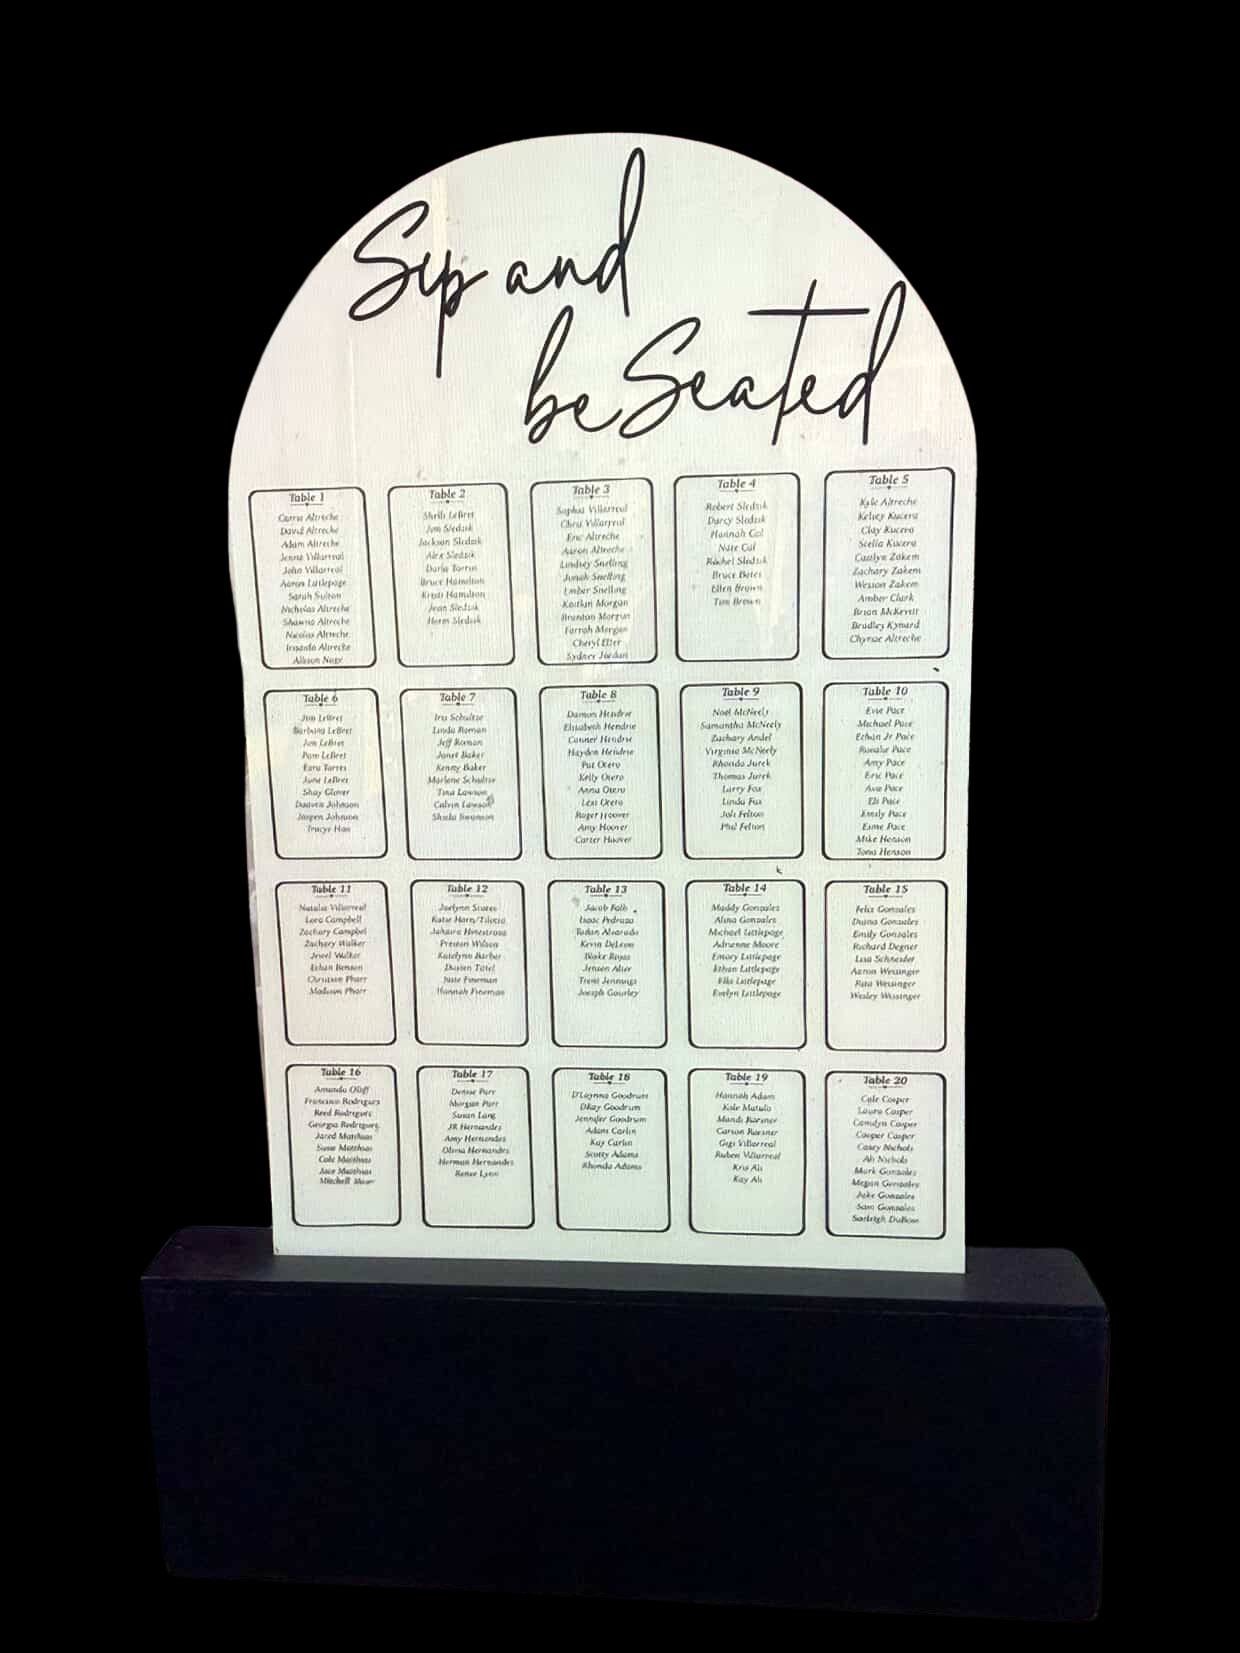 Sip and
be Seated
Table 1
Carrie Altreche
David Altreche
Adam Altreche
Jenna Villarreal
John Villarreal
Aaron Littlepage
Sarah Sutton
Nicholas Altreche
Shawna Altreche
Nicolas Altreche
Irisando Altreche
Allison Nage
Table 2
Shelli LeBret
Jim Sledzik
Jackson Sledzik
Alex Sledzik
Darla Torrin
Bruce Hamilton
Kristi Hamilton
Jean Sledzik
Herm Sledzik
Table 3
Sophia Villarreal
Chris Villarreal
Eric Altreche
Aaron Altreche
Lindsey Snelling
Jonah Snelling
Ember Snelling
Kaitlin Morgan
Brenton Morgan
Farrah Morgan
Cheryl Etter
Sydney Jordan
Table 4
Robert Sledzik
Darcy Sledzik
Hannah Cal
Nate Cal
Rachel Sledzik
Bruce Bates
Ellen Brown
Tim Brown
Table 5
Kyle Altreche
Kelsey Kucera
Clay Kucera
Stella Kucera
Caitlyn Zakem
Zachary Zakem
Wesson Zakem
Amber Clark
Brian McKevitt
Bradley Kynard
Chynae Altreche
Table 6
Jim LeBret
Barbara LeBret
Jon LeBret
Pam LeBret
Ezra Torres
June LeBret
Shay Glover
Daaven Johnson
Jaspen Johnson
Tracye Han
Table 7
Iris Schultze
Linda Roman
Jeff Roman
Janet Baker
Kenny Baker
Marlene Schultze
Tina Lawson
Calvin Lawson
Shiela Swanson
Table 8
Damon Hendrie
Elizabeth Hendrie
Conner Hendrie
Hayden Hendrie
Pat Otero
Kelly Otero
Anna Otero
Lexi Otero
Roger Hoover
Amy Hoover
Carter Hoover
Table 9
Noel McNeely
Samantha McNeely
Zachary Andel
Virginia McNeely
Rhonda Jurek
Thomas Jurek
Larry Fox
Linda Fox
Joli Felton
Phil Felton
Table 10
Evie Pace
Michael Pace
Ethan Jr Pace
Ronalie Pace
Amy Pace
Eric Pace
Avie Pace
Eli Pace
Emily Pace
Esme Pace
Mike Henson
Tonia Henson
Table 11
Natalia Villarreal
Lora Campbell
Zachary Campbel
Zachary Walker
Jewel Walker
Ethan Benson
Christian Pharr
Madison Pharr
Table 12
Joelynn Suarez
Katie Horn/Tilicia
Jahaira Hinestroza
Preston Wilson
Katelynn Barber
Dusten Titel
Nate Fineman
Hannah Fineman
Table 13
Jacob Falb
Isaac Pedraza
Tristan Alvarado
Kevin DeLeon
Blake Rojas
Jensen Alier
Trent Jennings
Joseph Gourley
Table 14
Maddy Gonzales
Alina Gonzales
Michael Littlepage
Adrienne Moore
Emory Littlepage
Ethan Littlepage
Ella Littlepage
Evelyn Littlepage
Table 15
Felix Gonzales
Diana Gonzales
Emily Gonzales
Richard Degner
Lisa Schneider
Aaron Wessinger
Rita Wessinger
Wesley Wessinger
Table 16
Amanda Oliff
Francisco Rodriguez
Reed Rodriguez
Georgia Rodriguez
Jared Matthias
Susie Matthias
Cole Matthias
Jace Matthias
Mitchell Moore
Table 17
Denise Parr
Morgan Parr
Susan Lang
JR Hernandez
Amy Hernandez
Olivia Hernandez
Herman Hernandez
Renee Lynn
Table 18
D'Laynna Goodrum
DKay Goodrum
Jennifer Goodrum
Adam Carlin
Kay Carlin
Scotty Adams
Rhonda Adams
Table 19
Hannah Adam
Kale Matula
Mandi Kuesner
Carson Kuesner
Gigi Villarreal
Ruben Villarreal
Kris Ali
Kay Ali
Table 20
Cole Casper
Laura Casper
Camdyn Casper
Cooper Casper
Casey Nichols
Ali Nichols
Mark Gonzales
Megan Gonzales
Jake Gonzales
Sam Gonzales
Sarleigh DuBose